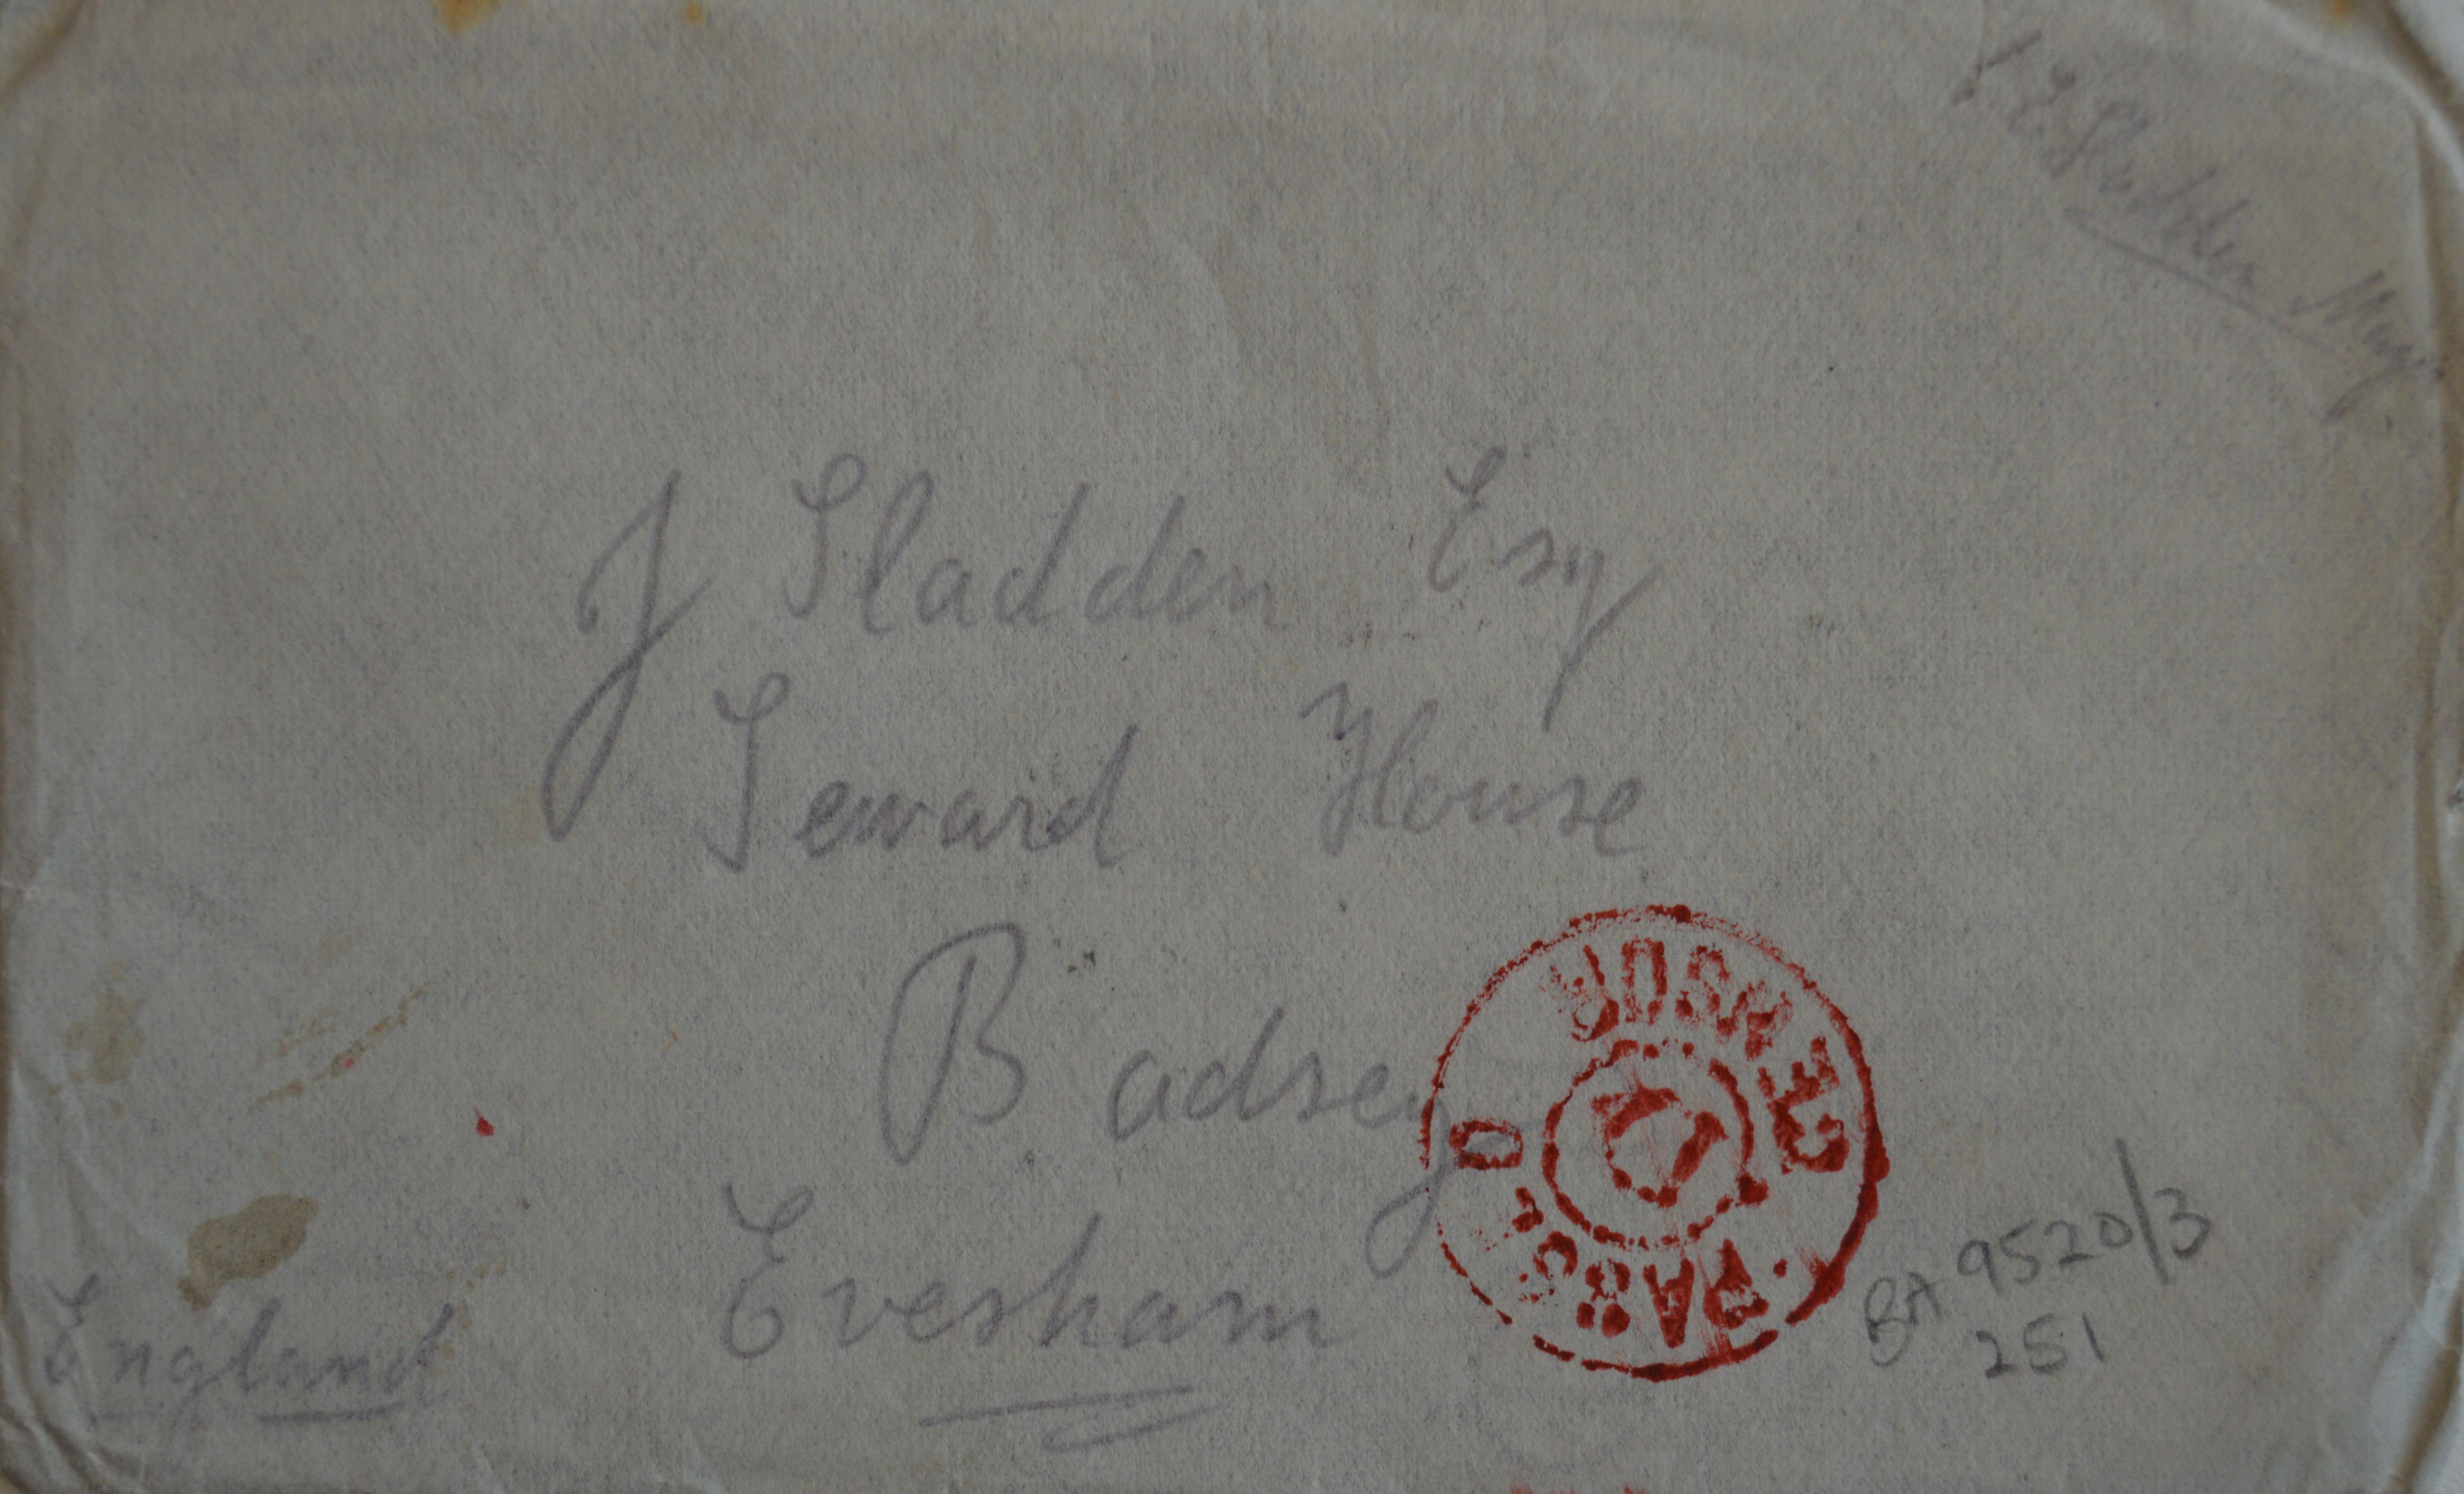 Sladden
J Sladden Esq
Seward House
Badsey
Evesham
England
PASSED
BA 9520/3
251